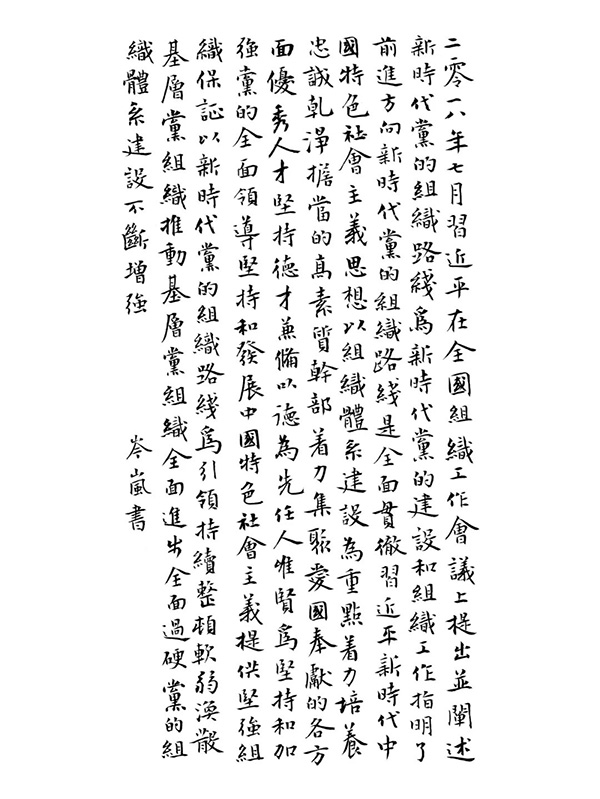 二零一八年七月習近平在全國組織工作會議上提出並闡述
新時代黨的組織路綫爲新時代黨的建設和組織工作指明了
前進方向新時代黨的組織路綫是全面貫徹習近平新時代中
國特色社會主義思想以組織體系建設為重點着力培養
忠誠乾淨擔當的高素質幹部着力集聚愛國奉獻的各方
面優秀人才堅持德才兼備以德為先任人唯賢爲堅持和加
強黨的全面領導堅持和發展中國特色社會主義提供堅強組
織保証以新時代黨的組織路綫爲引領持續整頓軟弱渙散
基層黨組織推動基層黨組織全面進步全面過硬黨的組
織體系建設不斷增強
岑嵐書